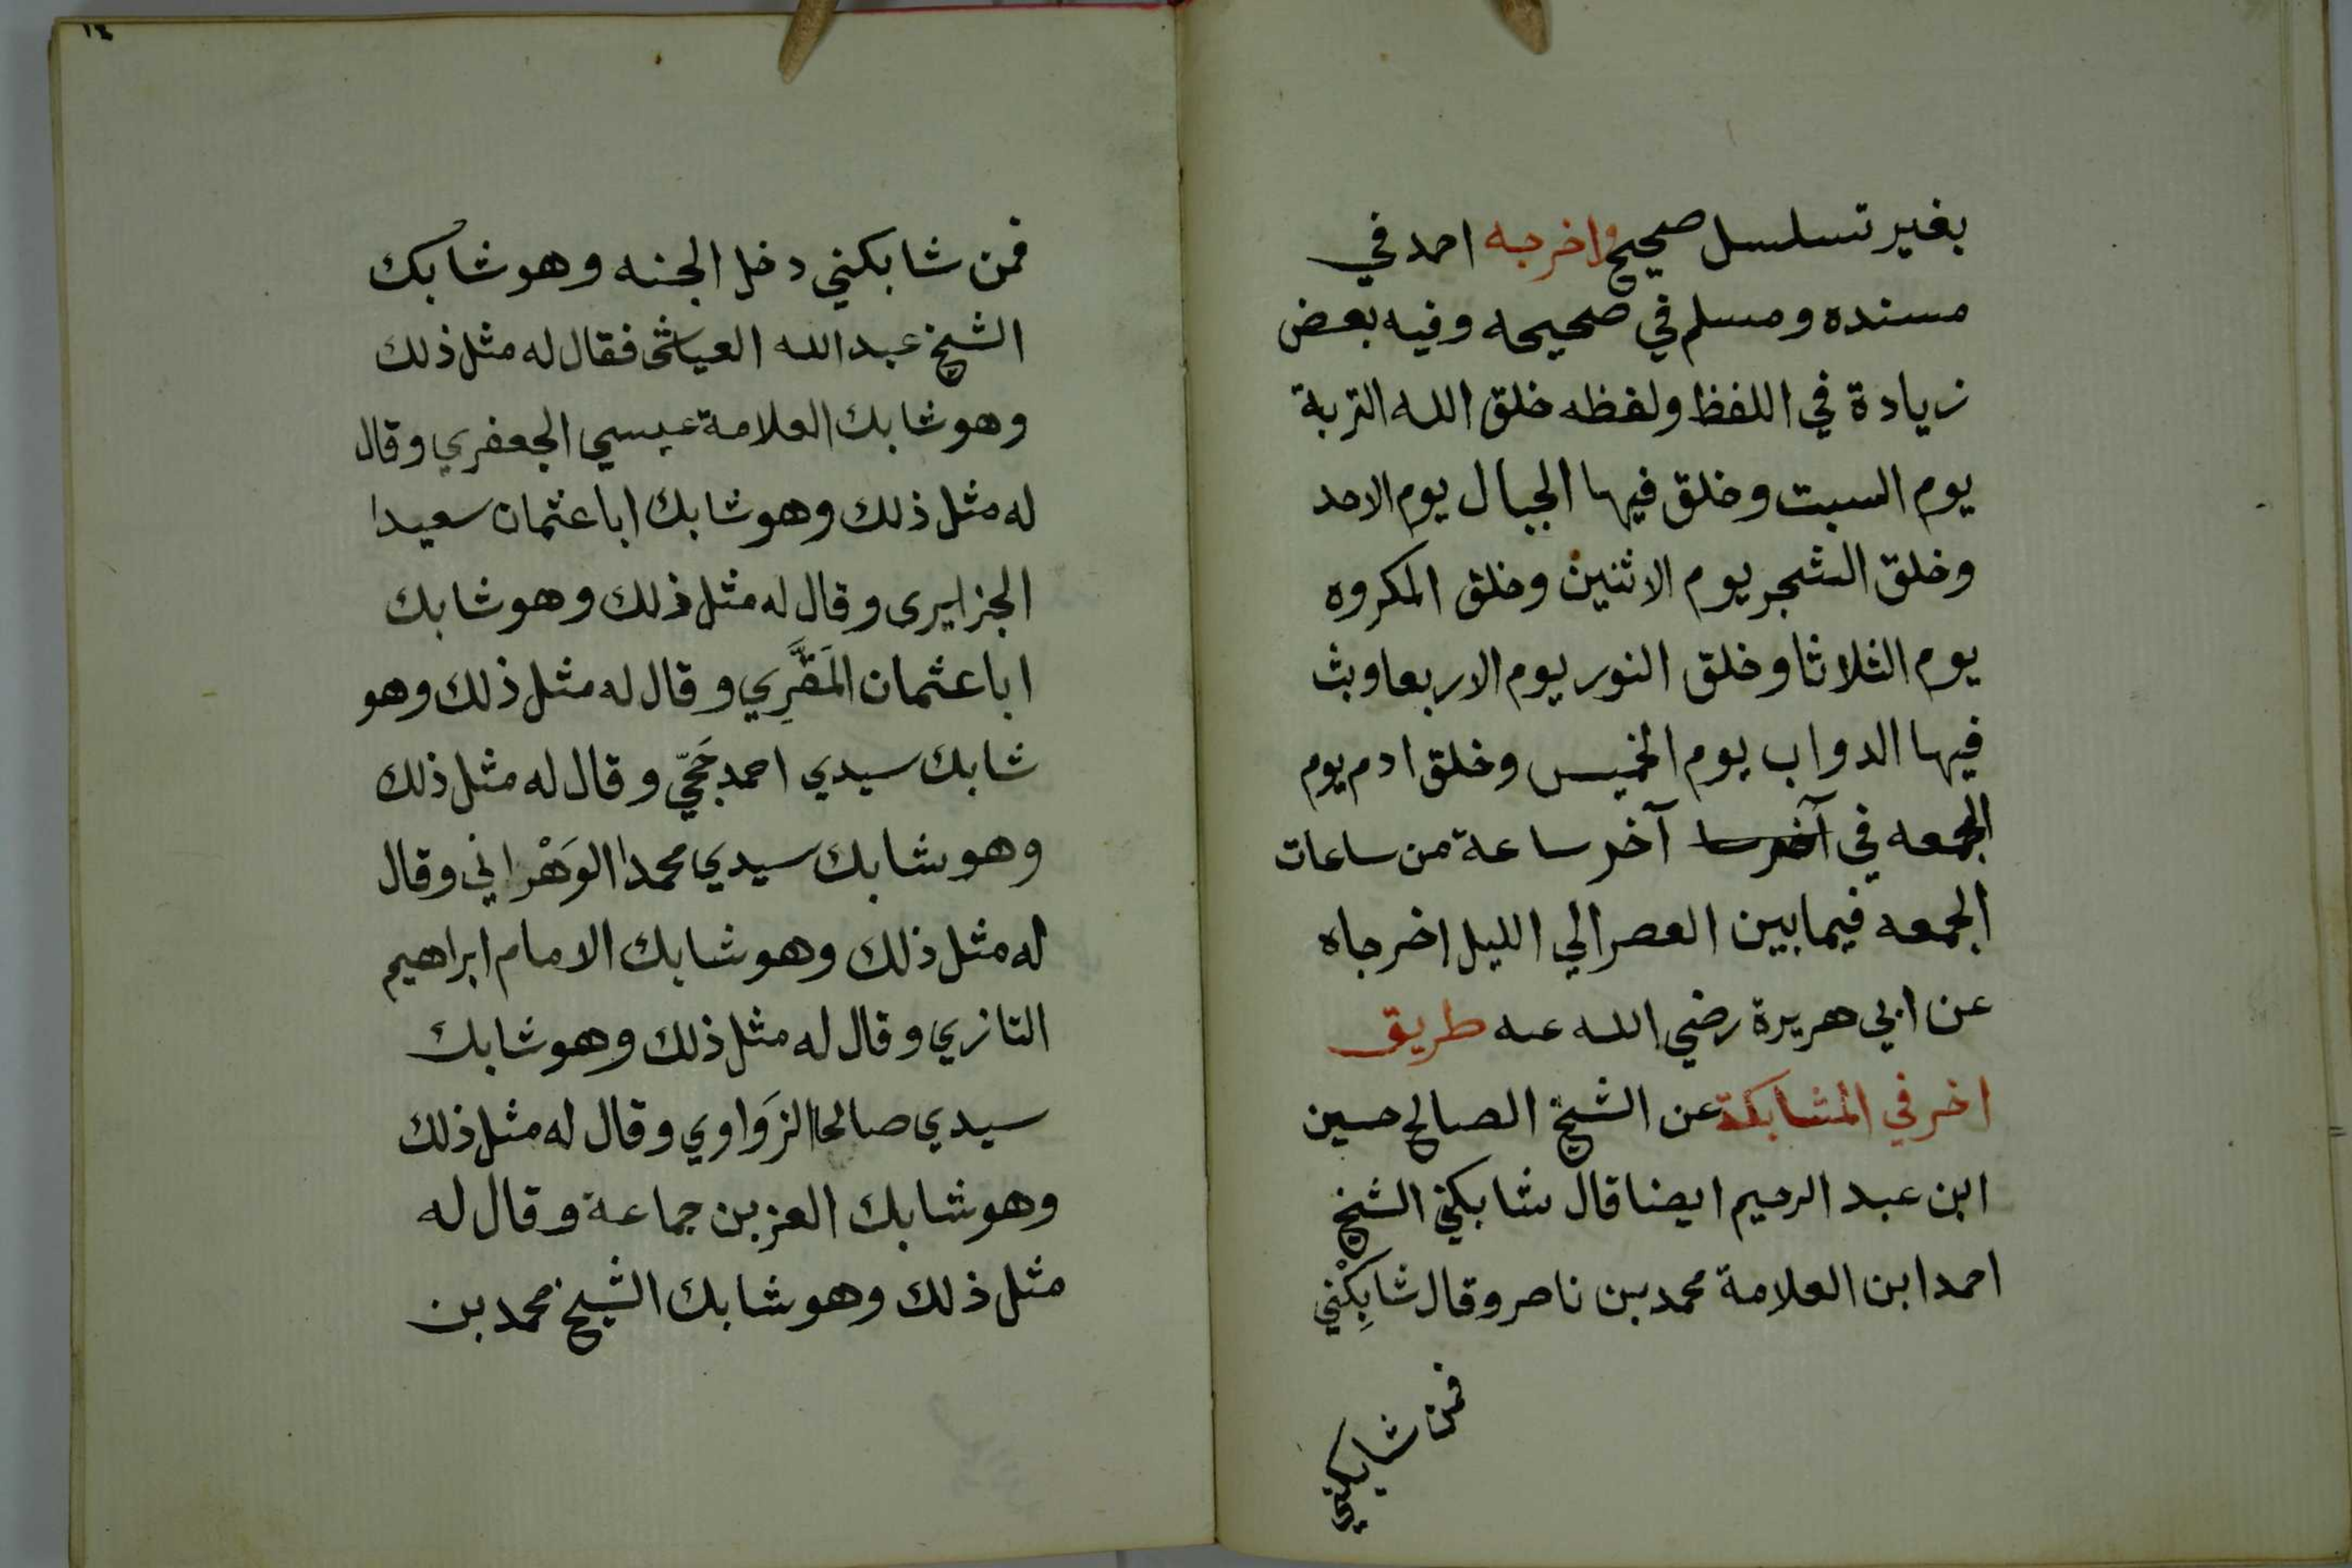 بغير تسلسل صحيح واخرجه احمد في
مسنده ومسلم في صحيحه وفيه بعض
زيادة في اللفظ ولفظه خلق الله التربة
يوم السبت وخلق فيها الجبال يوم الاحد
وخلق الشجر يوم الاثنين وخلق المكروه
يوم الثلاثا وخلق النور يوم الاربعا وبث
فيها الدواب يوم الخميس وخلق ادم يوم
الجمعه في آخر سا آخر ساعة من ساعات
الجمعه فيما بين العصر الي الليل اخرجاه
عن ابي هريرة رضي الله عنه طريق
اخر في المشابكة عن الشيخ الصالح حسين
ابن عبد الرحيم ايضا قال شابكني الشيخ
احمد ابن العلامة محمد بن ناصر وقال شابِكْني
فمن شابكني
١٤
فمن شابكني دخل الجنه وهو شابك
الشيخ عبد الله العياشى فقال له مثل ذلك
وهو شابك العلامة عيسي الجعفري وقال
له مثل ذلك وهو شابك ابا عثمان سعيدا
الجزايرى وقال له مثل ذلك وهو شابك
ابا عثمان المَقَّرِي وقال له مثل ذلك وهو
شابك سيدي احمد حَجّي وقال له مثل ذلك
وهو شابك سيدي محمدا الوَهْراني وقال
له مثل ذلك وهو شابك الامام ابراهيم
التازي وقال له مثل ذلك وهو شابك
سيدي صالحا الزَواوي وقال له مثل ذلك
وهو شابك العز بن جماعة وقال له
مثل ذلك وهو شابك الشيخ محمد بن